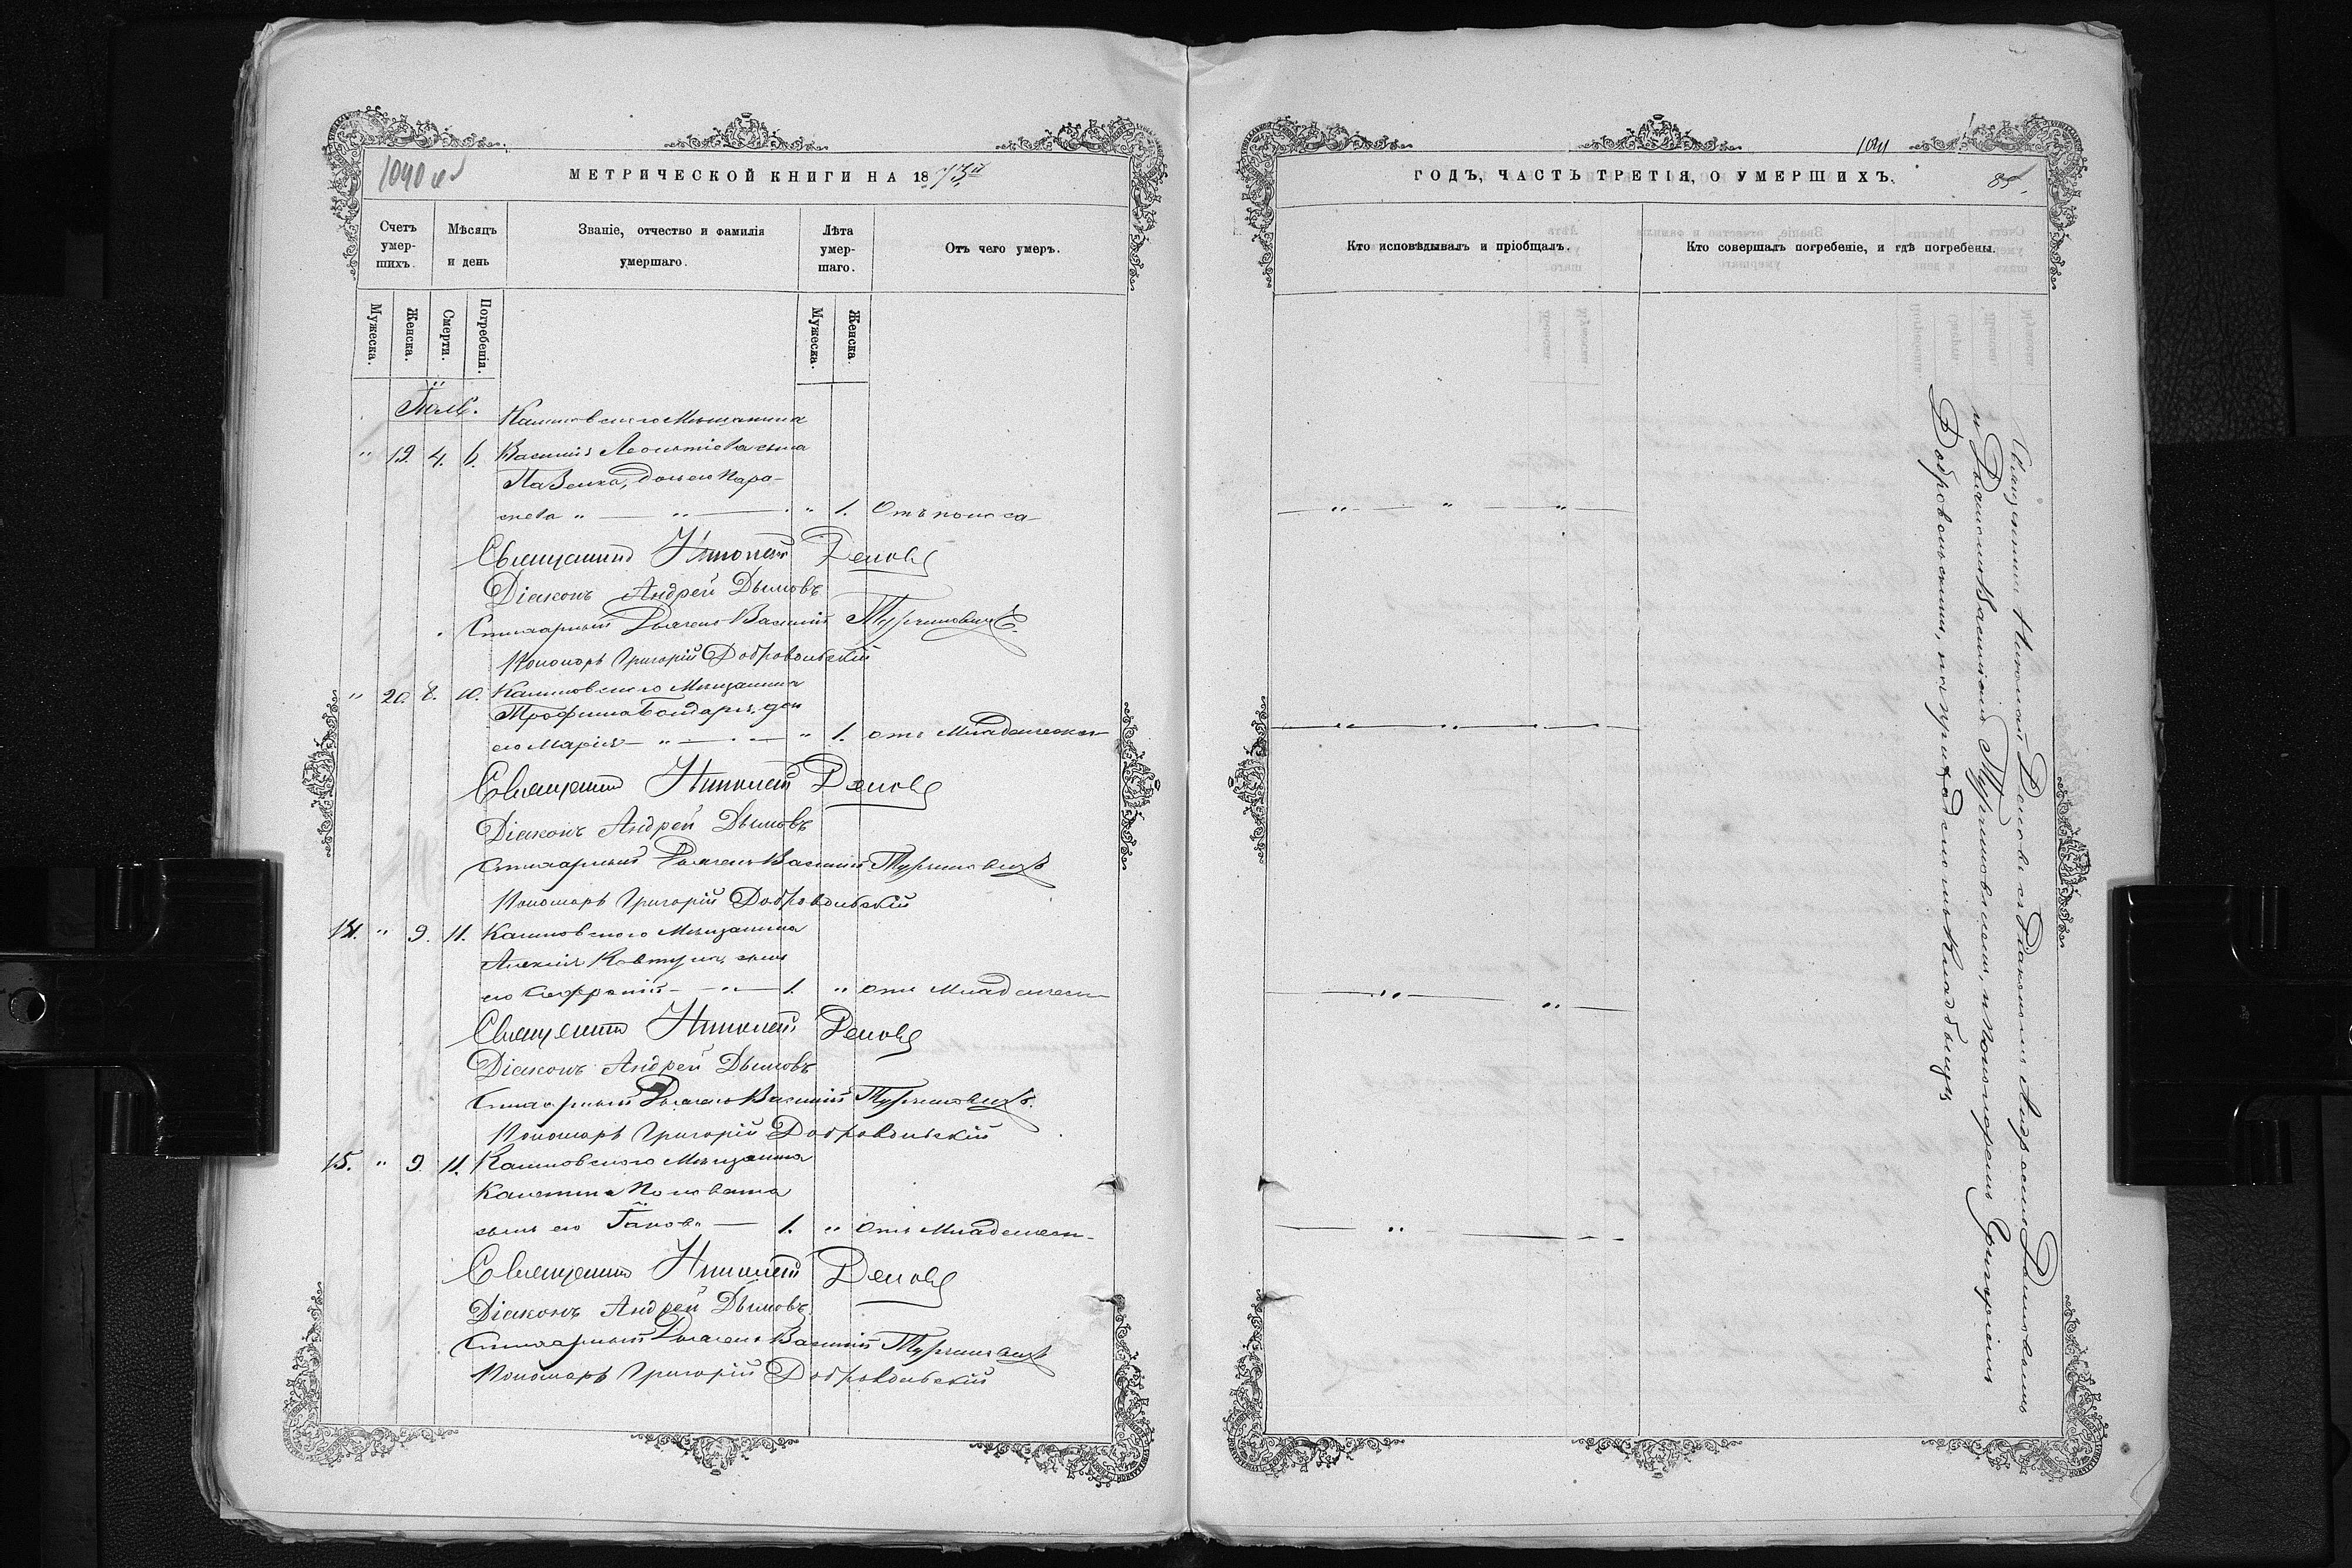 1040
МЕТРИЧЕСКОЙ КНИГИ НА 1873й
Счетъ умер- шихъ.
Мѣсяцъ и день
Званіе, отчество и фамилія умершаго.
Лѣта умер- шаго.
Отъ чего умеръ.
Мужеска.
Женска.
Смерти.
Погребенія.
Мужеска.
Женска.
Іюль.
" 19. 4. 6.
Мѣщанина
Василія Леонтіева сына
дочь его Пара-
скева " — " — " 1. Отъ поноса
Священникъ Николай
Діаконъ Андрей Дымовъ
Стихарный Дьячекъ Василій Турчиновичъ
Пономарь Григорій Добровольскій
" 20. 8. 10.
Мѣщанина
Трофима Бондаря, доч
его Марія — " — " 1. отъ Младенческ
Священникъ Николай
Діаконъ Андрей Дымовъ
Стихарный Дьячекъ Василій Турчиновичъ
Пономарь Григорій Добровольскій
14. " 9. 11.
Мѣщанина
Алексія Ковтуна, сынъ
его — " — 1. " отъ Младенческ
Священникъ Николай
Діаконъ Андрей Дымовъ
Стихарный Дьячекъ Василій Турчиновичъ.
Пономарь Григорій Добровольскій
15. " 9. 11.
Мѣщанина
сынъ его Іаковъ — 1. " отъ Младенческ
Священникъ Николай
Діаконъ Андрей Дымовъ
Стихарный Дьячекъ Василій Турчиновичъ
Пономарь Григорій Добровольскій
1041
ГОДЪ, ЧАСТЬ ТРЕТІЯ, О УМЕРШИХЪ.
85.
Кто исповѣдывалъ и пріобщалъ.
Кто совершалъ погребеніе, и гдѣ погребены.
Священникъ Николай съ Діакономъ Андреемъ Дымовымъ
и Дьячкомъ Василіемъ Турчиновичемъ, и Пономаремъ Григоріемъ
Добровольскимъ, на приходскомъ кладбищѣ